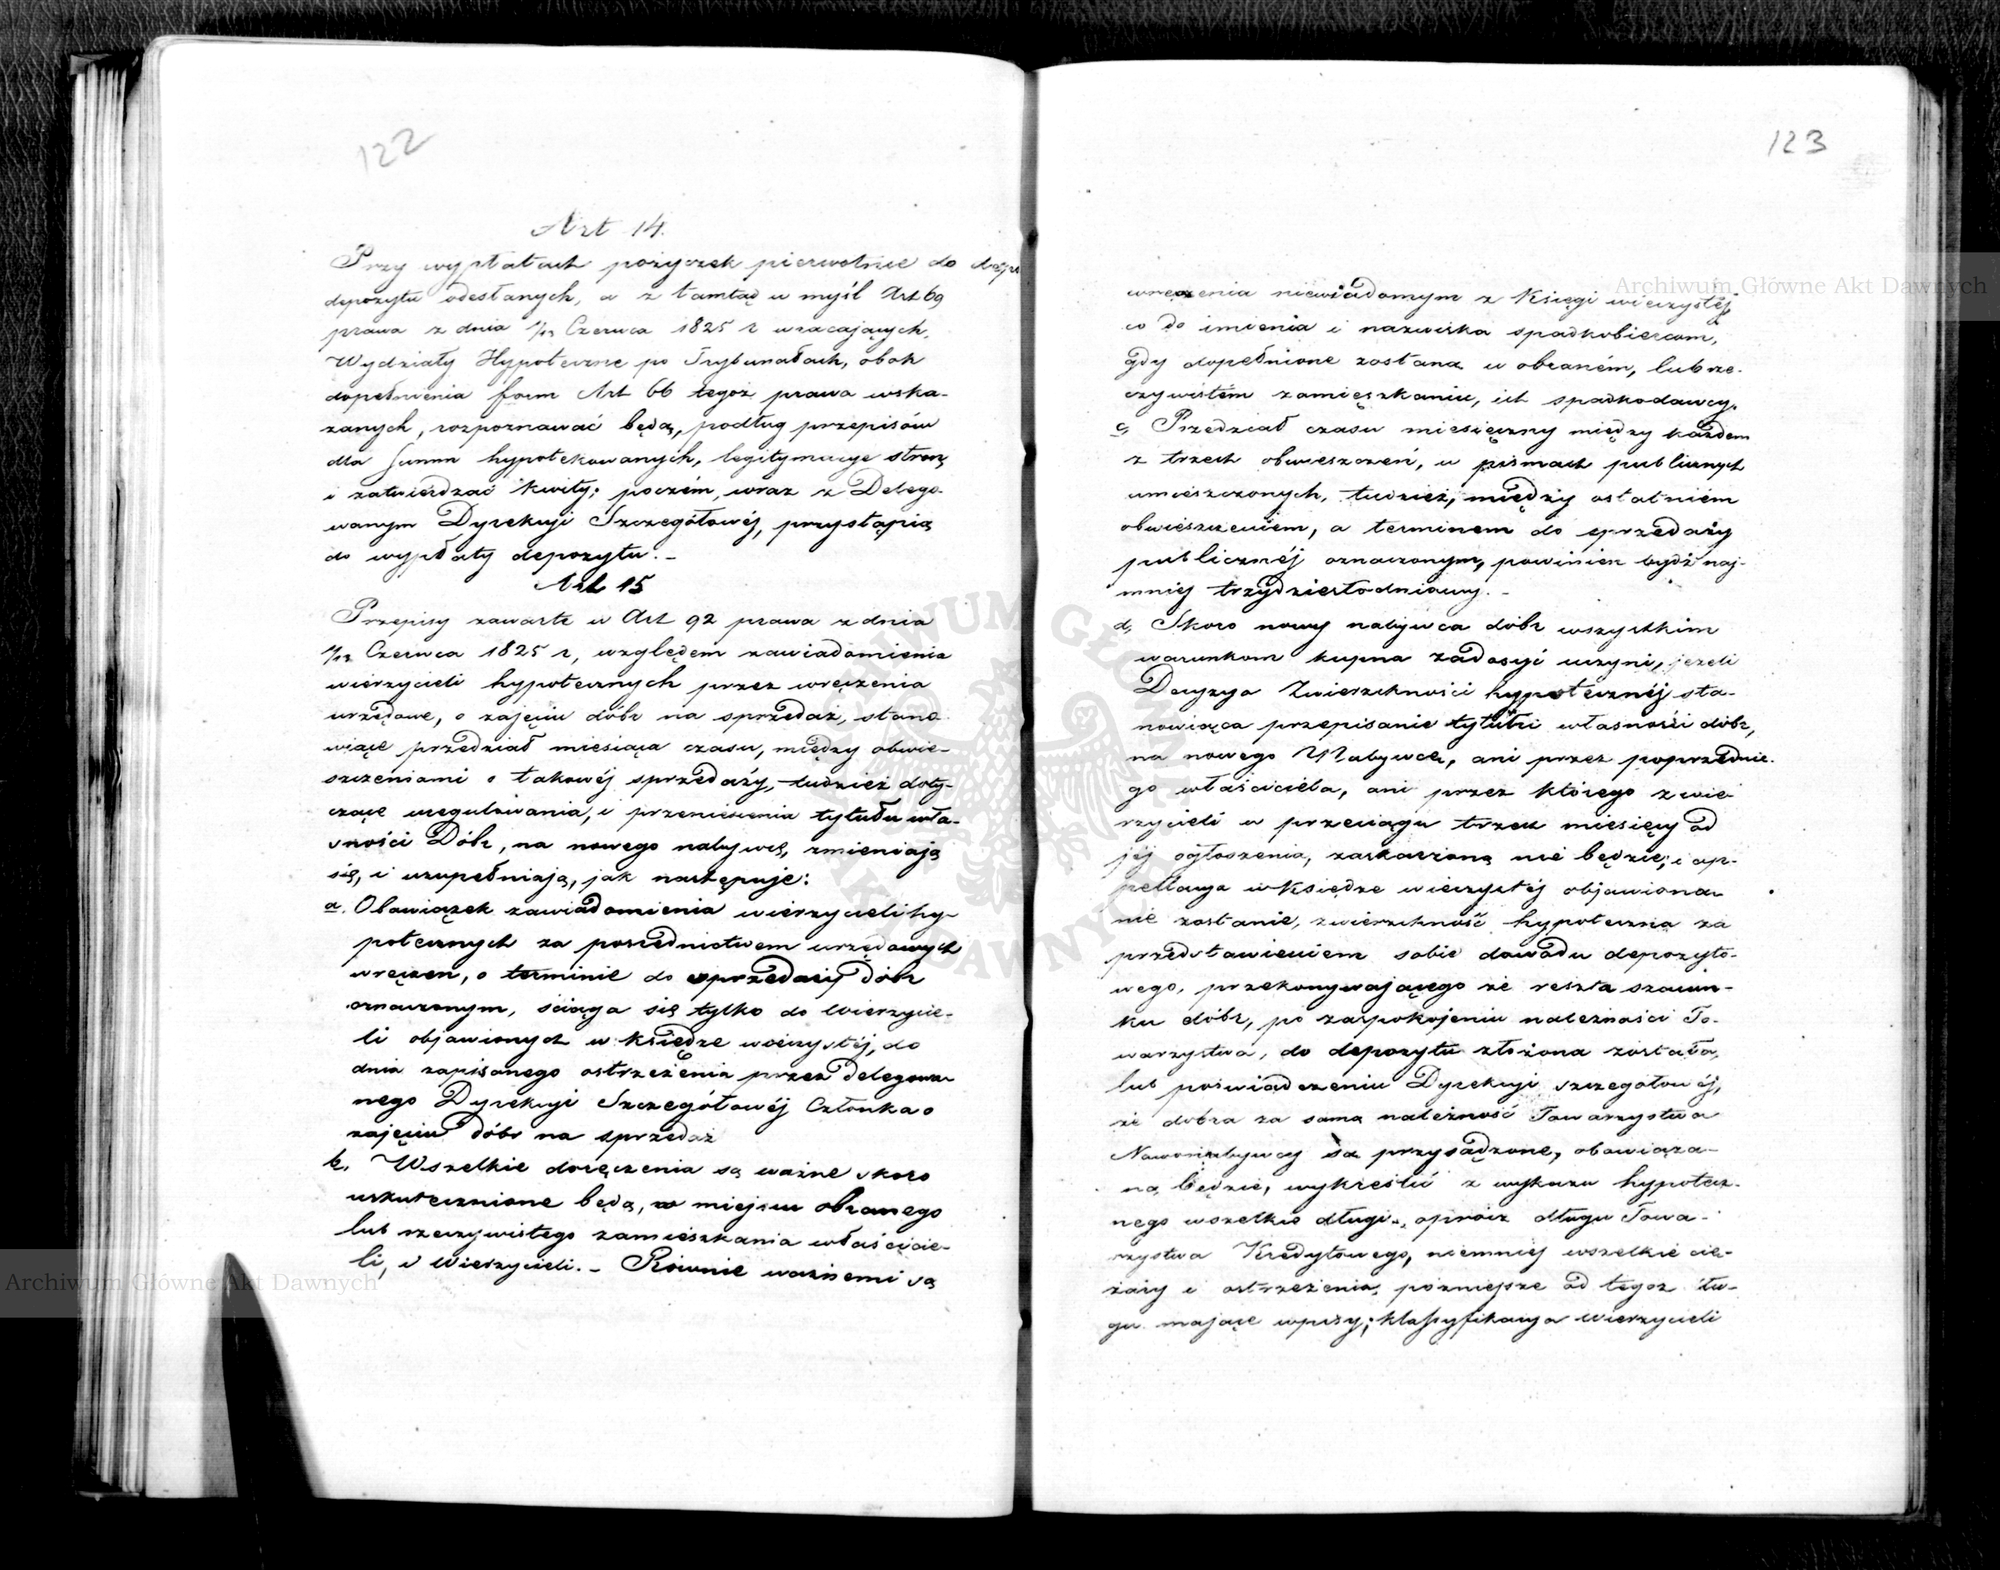 122
Art 14.
Przy wypłatach pożyczek pierwotnie do
depozytu odesłanych, a z tamtąd w myśl Art 69
prawa z dnia 1/13 Czerwca 1825 r wracających,
Wydziały Hypoteczne po Trybunałach, obok
dopełnienia form Art 66 tegoż prawa wska-
zanych, rozpoznawać będą, podług przepisów
dla summ hypotekowanych, legitymacye stron,
i zatwierdzać kwity; poczém, wraz z Delego-
wanym Dyrekcyi Szczegółowéj, przystąpią
do wypłaty depozytu. -
Art 15
Przepisy zawarte w Art 92 prawa z dnia
1/13 Czerwca 1825 r, względem zawiadomienia
wierzycieli hypotecznych przez wręczenia
urzędowe, o zajęciu dóbr na sprzedaż, stano
wiące przedział miesiąca czasu, między obwie-
szczeniami o takowéj sprzedaży, tudzież doty-
czące uregulowania, i przeniesienia tytułu wła-
sności Dóbr, na nowego nabywcę, zmieniają
się, i uzupełniają, jak następuje:
a. Obowiązek zawiadomienia wierzycieli hy-
potecznych za pośrednictwem urzędowych
wręczeń, o terminie do sprzedaży dóbr
oznaczonym, ściąga się tylko do wierzycie-
li objawionych w księdze wieczystéj, do
dnia zapisanego ostrzeżenia przez delegowa
nego Dyrekcyi Szczegółowéj Członka o
zajęciu dóbr na sprzedaż
b. Wszelkie doręczenia są ważne skoro
uskutecznione będą, w miejscu obranego
lub rzeczywistego zamieszkania właścicie-
li, i Wierzycieli. - Równie ważnemi są
123
wręczenia niewiadomym z Księgi wieczystéj,
co do imienia i nazwiska spadkobiercom,
gdy dopełnione zostaną w obraném, lub rze-
czywistém zamieszkaniu, ich spadkodawcy.
c, Przedział czasu miesięczny między każdem
z trzech obwieszczeń, w pismach publicznych
umieszczonych, tudzież, między ostatniém
obwieszczeniem, a terminem do sprzedaży
publicznéj oznaczonym, powinien bydź naj-
mniéj trzydziestodniowy. -
d, Skoro nowy nabywca dóbr wszystkim
warunkom kupna zadosyć uczyni, jeżeli
Decyzya Zwierzchności hypotecznéj sta-
nowiąca przepisanie tytułu własności dóbr,
na nowego Nabywcę, ani przez poprzednie-
go właściciela, ani przez którego z wie
rzycieli w przeciągu trzech miesięcy od
jéj ogłoszenia, zaskarżoną nie będzie, i ap-
pellacya w Księdze wieczystéj objawiona
nie zostanie, zwierzchność hypoteczna za
przedstawieniem sobie dowodu depozyto-
wego, przekonywającego że reszta szacun-
ku dóbr, po zaspokojeniu należności To-
warzystwa, do depozytu złożona została,
lub poświadczeniu Dyrekcyi szczegółowéj,
że dobra za samą należność Towarzystwa
Nowonabywcy są przysądzone, obowiąza-
ną będzie, wykreślić z wykazu hypotecz-
nego wszelkie długi, oprócz długu Towa-
rzystwa Kredytowego, niemniéj wszelkie cię-
żary i ostrzeżenia, późniejsze od tegoż dłu-
gu mające wpisy; klassyfikacya wierzycieli
Archiwum Główne Akt Dawnych
Archiwum Główne Akt Dawnych
ARCHIWUM GŁÓWNE AKT DAWNYCH